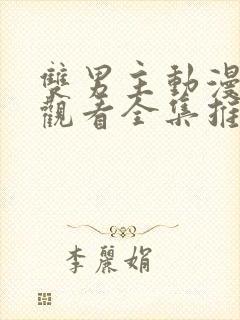 雙男主動漫
觀看全集推
李麗娟